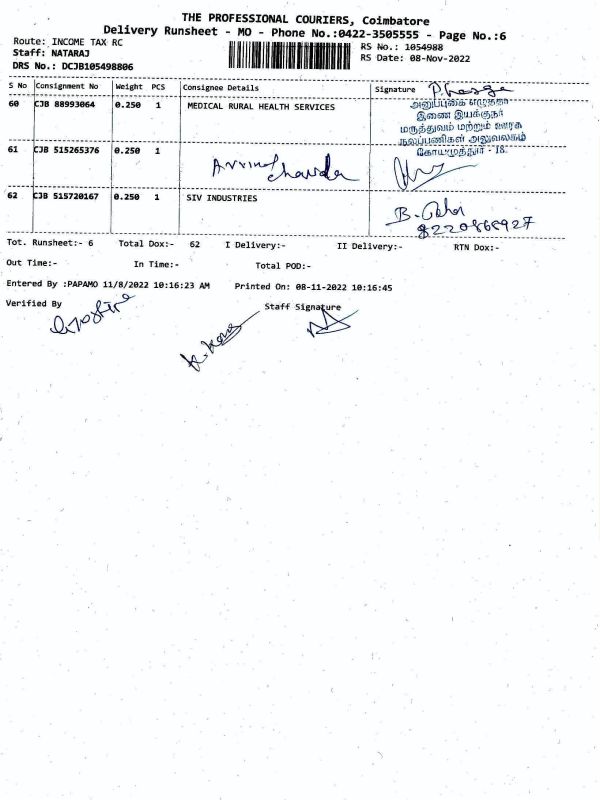 THE PROFESSIONAL COURIERS, Coimbatore
Delivery Runsheet - MO - Phone No.:0422-3505555 - Page No.:6
Route: INCOME TAX RC
RS No.: 1054988
Staff: NATARAJ
RS Date: 08-Nov-2022
DRS No.: DCJB105498806
S No Consignment No Weight PCS Consignee Details Signature
60 CJB 88993064 0.250 1 MEDICAL RURAL HEALTH SERVICES
இணை இயக்குநர்
மருத்துவம் மற்றும் ஊரக
நலப்பணிகள் அலுவலகம்
கோயமுத்தூர் - 18.
61 CJB 515265376 0.250 1
62 CJB 515720167 0.250 1 SIV INDUSTRIES
Tot. Runsheet:- 6 Total Dox:- 62 I Delivery:- II Delivery:- RTN Dox:-
Out Time:- In Time:- Total POD:-
Entered By :PAPAMO 11/8/2022 10:16:23 AM Printed On: 08-11-2022 10:16:45
Verified By Staff Signature